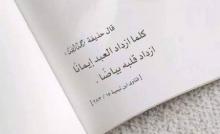 قال حذيفة رضي الله عنه
كلما ازداد العبد إيمانا
ازداد قلبه بياضا.